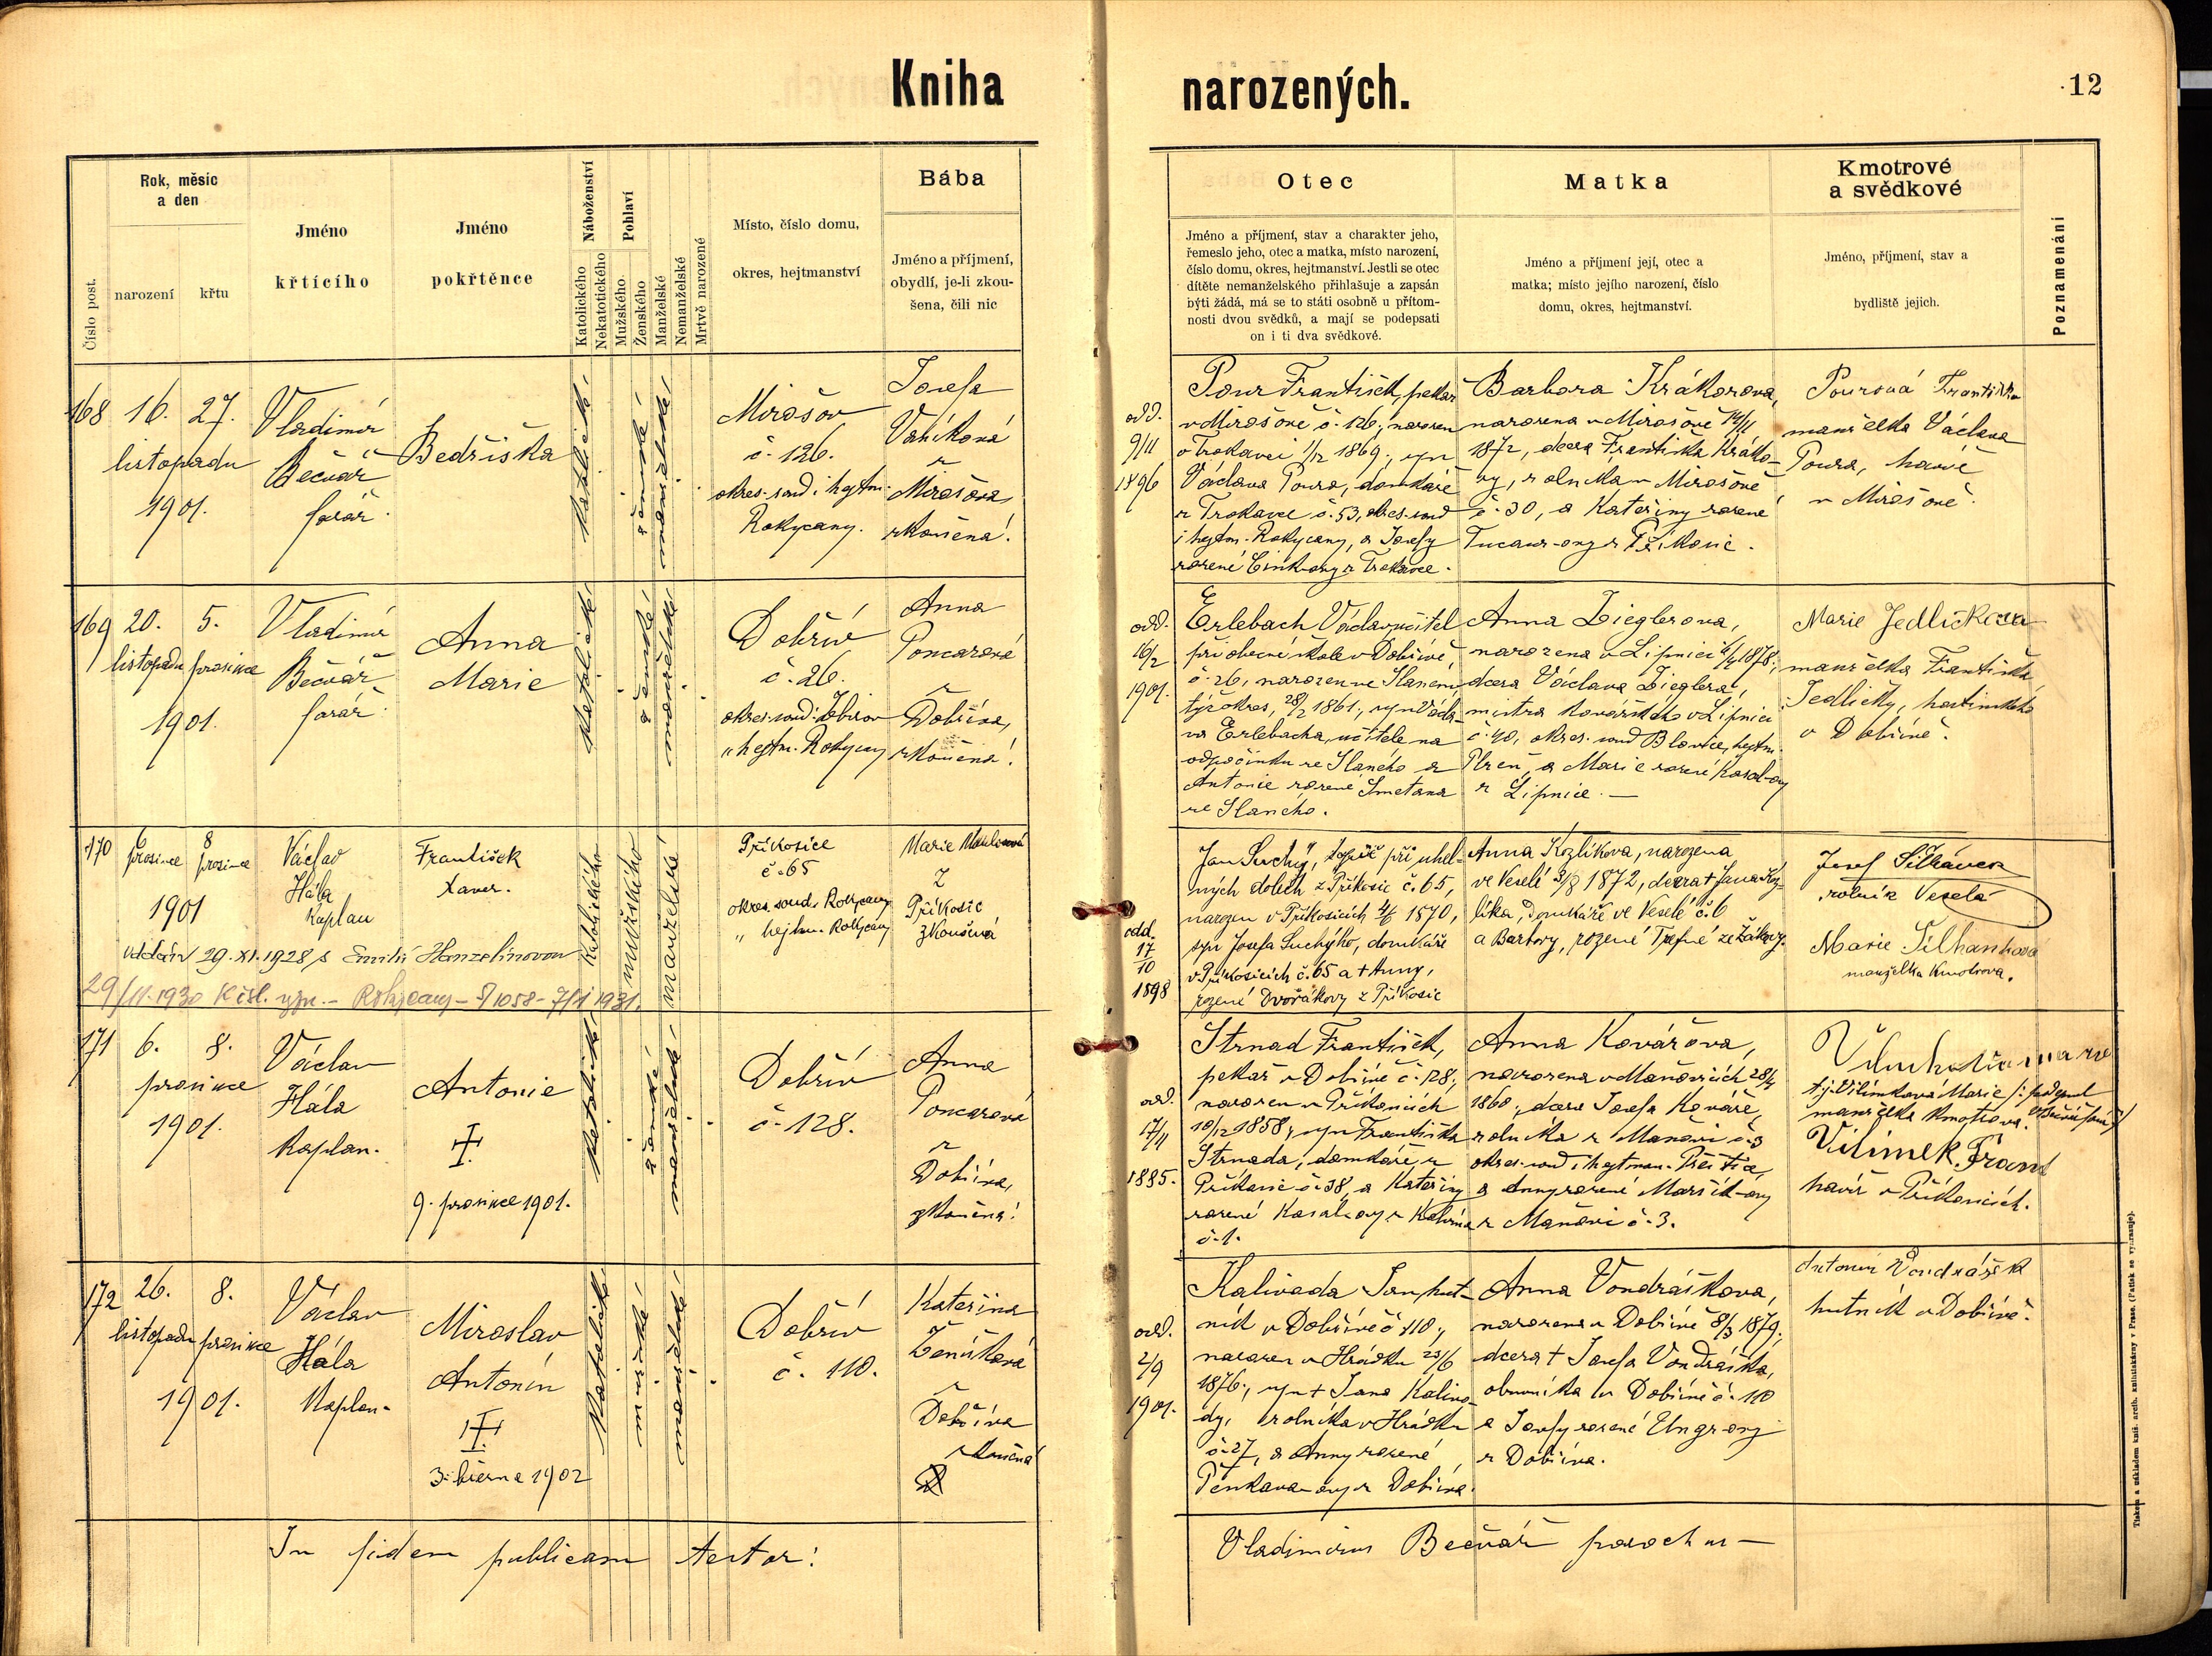 Kniha narozených.
12
Číslo post.
Rok, měsíc
a den
narození
křtu
Jméno
křtícího
Jméno
pokřtěnce
Náboženství
Katolického
Nekatolického
Pohlaví
Mužského
Ženského
Manželské
Nemanželské
Mrtvě narozené
Místo, číslo domu,
okres, hejtmanství
Bába
Jméno a příjmení,
obydlí, je-li zkou-
šena, čili nic
Otec
Jméno a příjmení, stav a charakter jeho,
řemeslo jeho, otec a matka, místo narození,
číslo domu, okres, hejtmanství. Jestli se otec
dítěte nemanželského přihlašuje a zapsán
býti žádá, má se to státi osobně u přítom-
nosti dvou svědků, a mají se podepsati
on i ti dva svědkové.
Matka
Jméno a příjmení její, otec a
matka; místo jejího narození, číslo
domu, okres, hejtmanství.
Kmotrové
a svědkové
Jméno, příjmení, stav a
bydliště jejich.
Poznamenání
168
16. 27.
listopadu
1901.
Vladimír
Bečvář
farář.
Bedřiška
katolické
ženské
manželské
Mirošov
č. 126.
okres. soud i hejtm.
Rokycany.
Josefa
z
Mirošova,
zkoušená.
odd.
9/11
1896
Pour František, pekař
v Mirošově č. 126, narozen
v Trokavci 1/12 1869, syn
Václava Poura, domkáře
z Trokavce č. 53, okres. soud
i hejtm. Rokycany, a Josefy
rozené z Trokavce.
Barbora Krákorova,
narozena v Mirošově 14/11
1872, dcera Františka Kráko-
ry, rolníka v Mirošově
č. 30, a Kateřiny rozené
z Příkosic.
Pourová Františka
manželka Václava
Poura, havíře
v Mirošově.
169
20. 5.
listopadu prosince
1901.
Vladimír
Bečvář
farář.
Anna
Marie
katolické
ženské
manželské
Dobřív
č. 26.
okres. soud. Zbirov
" hejtm. Rokycany
Anna
Poncarová
z
Dobříva,
zkoušená.
odd.
16/2
1901.
Erlebach Václav, učitel
při obecné škole v Dobřívě,
č. 26, narozen ve Slaném,
týž okres, 28/2 1861, syn Václa-
va Erlebacha, učitele na
odpočinku ve Slaného a
Antonie rozené Smetana
ze Slaného.
Anna Zieglerova,
narozena v Lipnici 1878,
dcera Václava Zieglera,
mistra kovářského v Lipnici
č. 40, okres. soud Blovice, hejtm.
Plzeň, a Marie rozené
z Lipnice. —
Marie Jedličkova
manželka Františka
Jedličky, hostinského
v Dobřívě.
170
6 8
prosince prosince
1901
Václav
Hála
Kaplan
František
Xaver.
Katolického
mužského
manželské
Příkosice
č. 65
okres. soud. Rokycany
" hejtm. Rokycany
Marie
Z
Příkosic
zkoušená
oddán 29. XI. 1928 s Emilií Hanzelínovou
29/11. 1930 K čsl. vyzn. – Rokycany – 1058 – 7/1 1931.
odd.
17
10
1898
Jan Suchý, topič při uhel-
ných dolech z Příkosic č. 65,
narozen v Příkosicích 4/6 1870,
syn Josefa Suchýho, domkáře
v Příkosicích č. 65 a + Anny,
rozené Dvořákovy z Příkosic
Anna Kozlíkova, narozena
ve Veselé 3/8 1872, dcera + Jana Koz-
líka, domkáře ve Veselé č. 6
a Barbory, rozené Trefné ze
Josef Šilhánek
rolník Veselá
Marie Šilhánková
manželka kmotrova.
171
6. 8.
prosince
1901.
Václav
Hála
Kaplan.
Antonie
†
9. prosince 1901.
katolické
ženské
manželské
Dobřív
č. 128.
Anna
Poncarová
z
Dobříva,
zkoušená.
odd.
17/11
1885.
Strnad František,
pekař v Dobřívě č. 128,
narozen v Příkosicích
10/12 1858, syn Františka
Strnada, domkáře z
Příkosic č. 38, a Kateřiny
rozené
č. 1.
Anna Kovářova,
narozena v Mañovicích 28/4
1860, dcera Josefa Kováře,
rolníka z Mañovic č. 3
okres. soud i hejtman. Přeštice,
a Anny rozené
z Mañovic č. 3.
t. j. Vilímková Marie
manželka kmotrova.
Vilímek Frant
havíř v Příkosicích.
172
26. 8.
listopadu prosince
1901.
Václav
Hála
Kaplan.
Miroslav
Antonín
†
3. března 1902
katolické
mužské
manželské
Dobřív
č. 110.
Kateřina
Ženíšková
z
Dobříva
zkoušená
odd.
2/9
1901.
Kalivoda Jan, hut-
ník v Dobřívě č. 110,
narozen v Hrádku 23/6
1876, syn + Jana Kalivo-
dy, rolníka v Hrádku
č. 27, a Anny rozené
z Dobříva.
Anna Vondráškova,
narozena v Dobřívě 8/3 1879,
dcera + Josefa Vondráška,
obuvníka v Dobřívě č. 110
a Josefy rozené Ungrovy
z Dobříva.
Antonín Vondrášek
hutník v Dobřívě.
In fidem publicam testor:
Vladimirus Bečvář parochus —